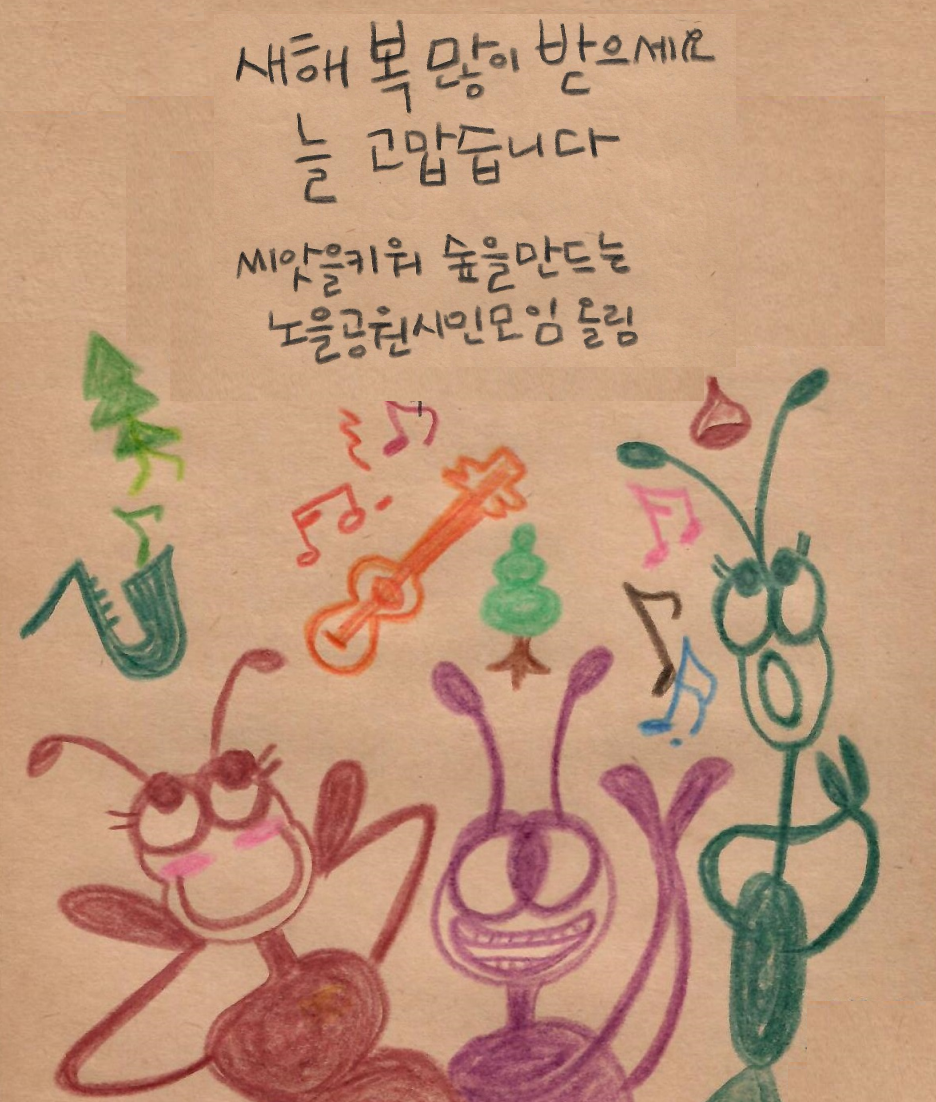 새해 복 많이 받으세요
늘 고맙습니다
씨앗을키워 숲을만드는
노을공원시민모임 올림